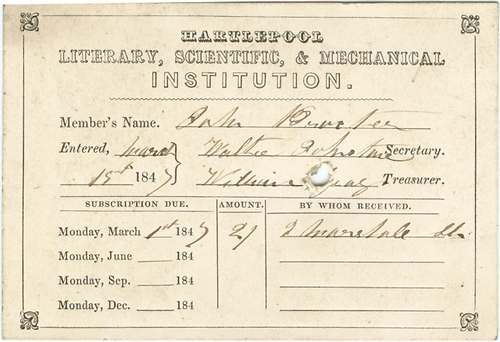 HARTLEPOOL
LITERARY, SCIENTIFIC, & MECHANICAL
INSTITUTION.
Member's Name. John Procter
Entered, March Walter Johnstone Secretary.
1st 1847 William Gray Treasurer.
SUBSCRIPTION DUE. AMOUNT. BY WHOM RECEIVED.
Monday, March 1st 1847 2/
Monday, June 184
Monday, Sep. 184
Monday, Dec. 184